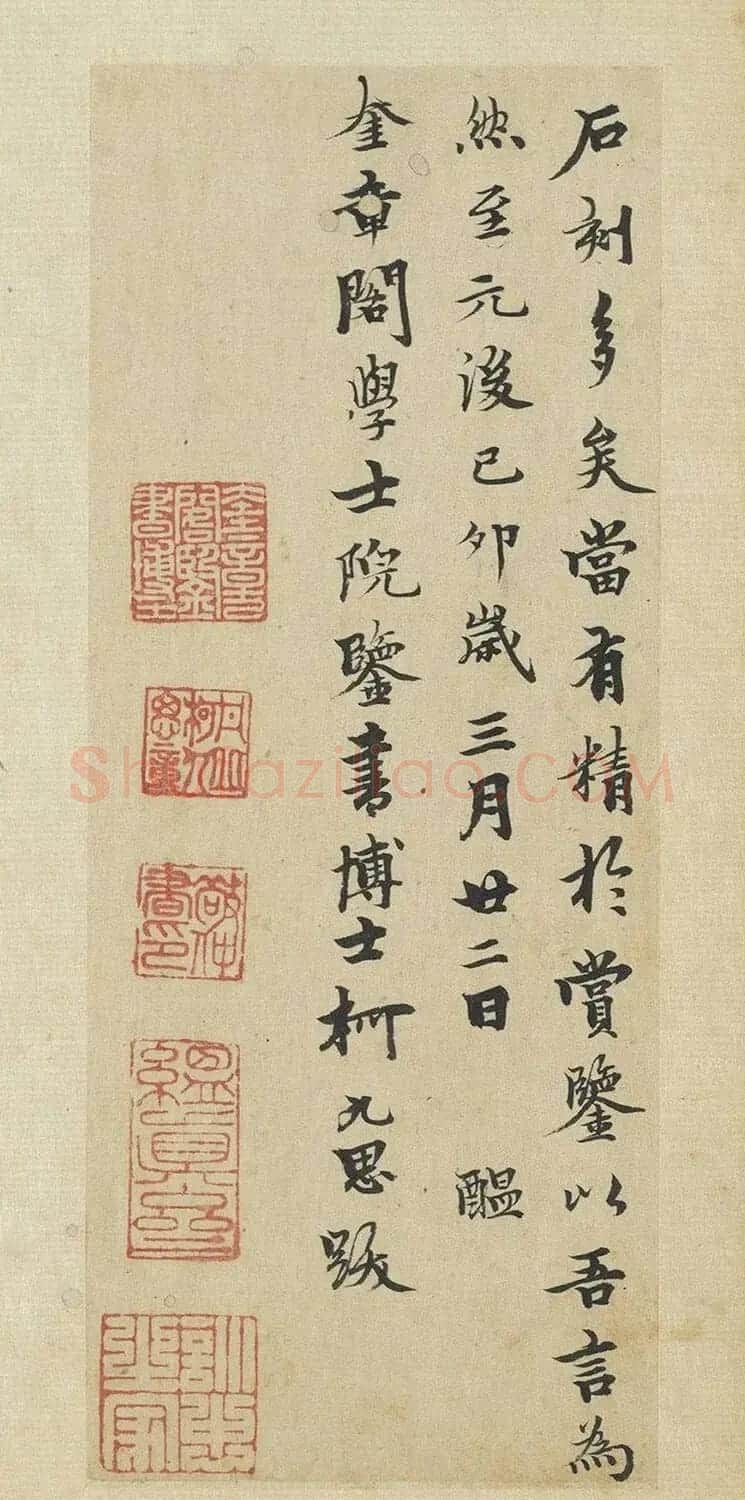 石刻多矣當有精於賞鑒以吾言為
然至元後己卯歲三月廿二日 醞
奎章閣學士院鑒書博士柯九思跋
奎章閣鑒書博士
敬仲書印
縕真齋
訓忠之家
Shufaziliao.COM